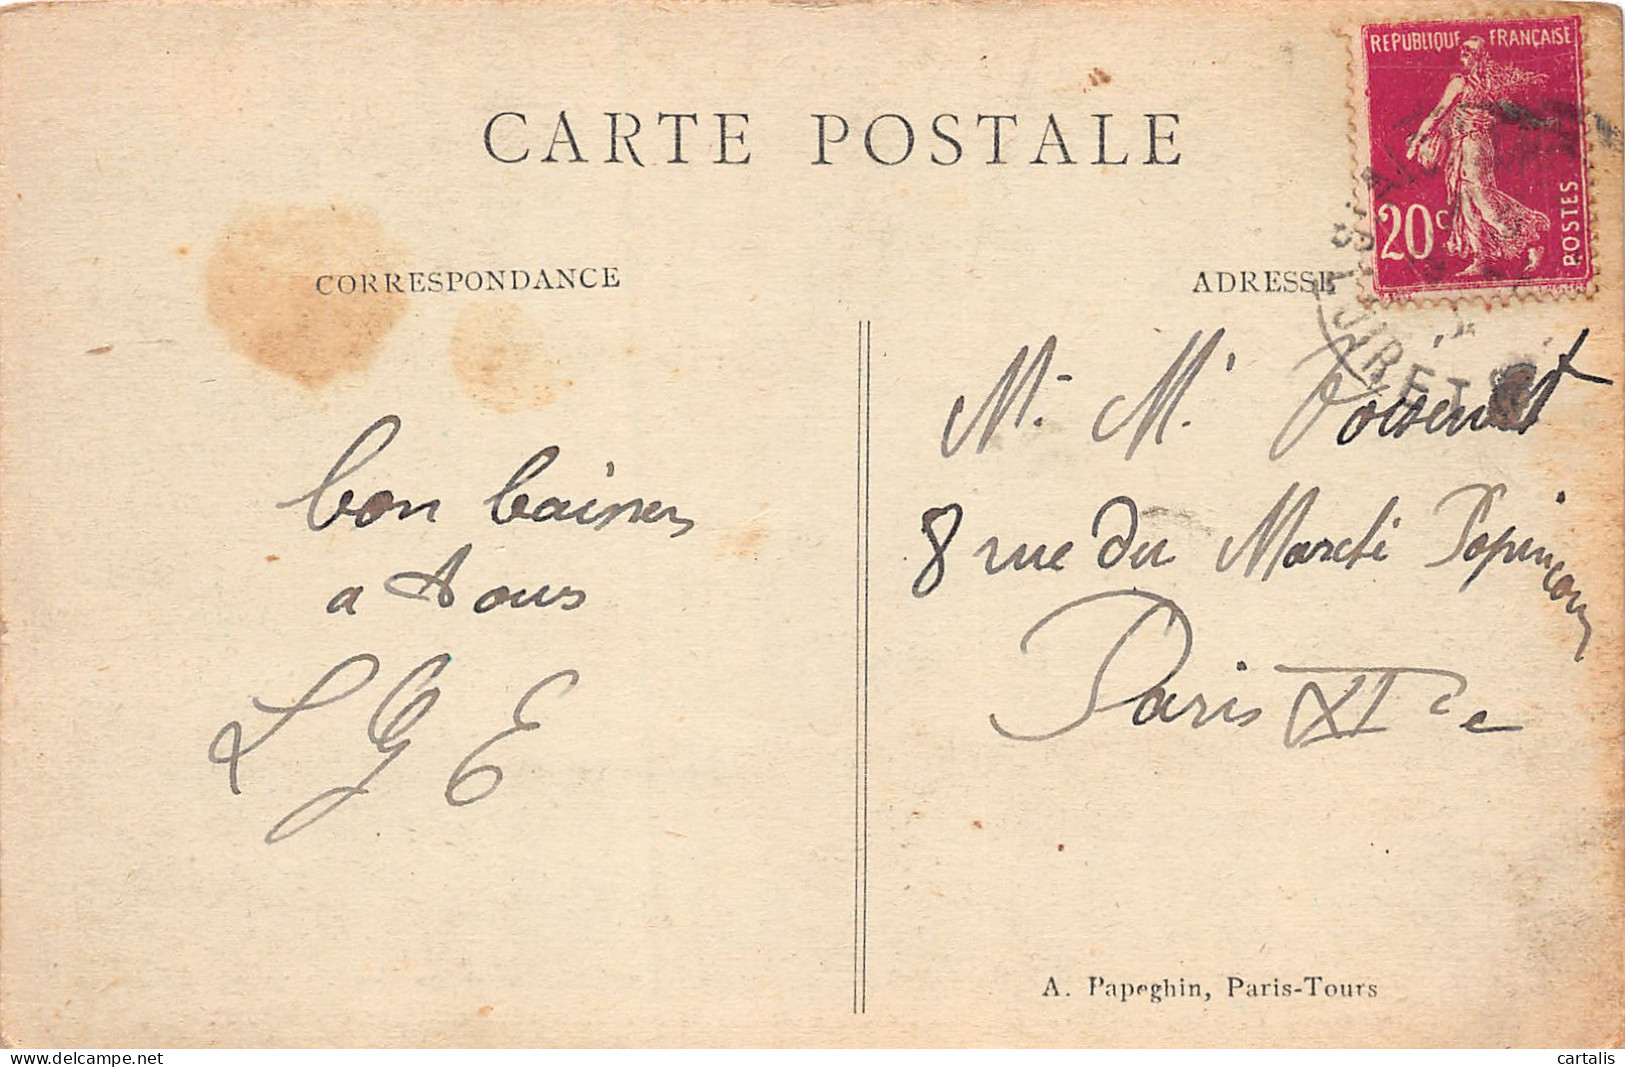 CARTE POSTALE
REPUBLIQUE FRANÇAISE
20c
POSTES
CORRESPONDANCE
ADRESSE
bon baisers
a tous
L G E
Mr. M.
8 rue du Marché Popincourt
Paris XIe
A. Papeghin, Paris-Tours
delcampe.net
cartalis